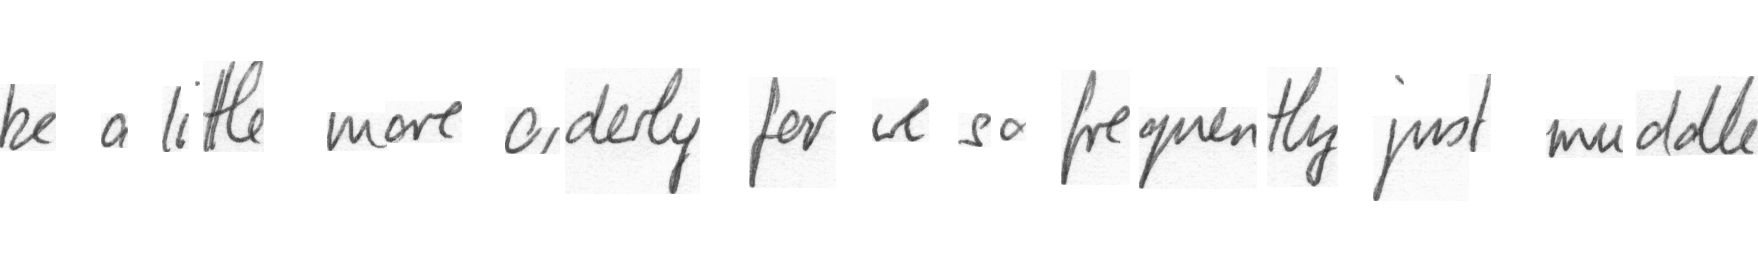 be a little more orderly for we so frequently just muddle